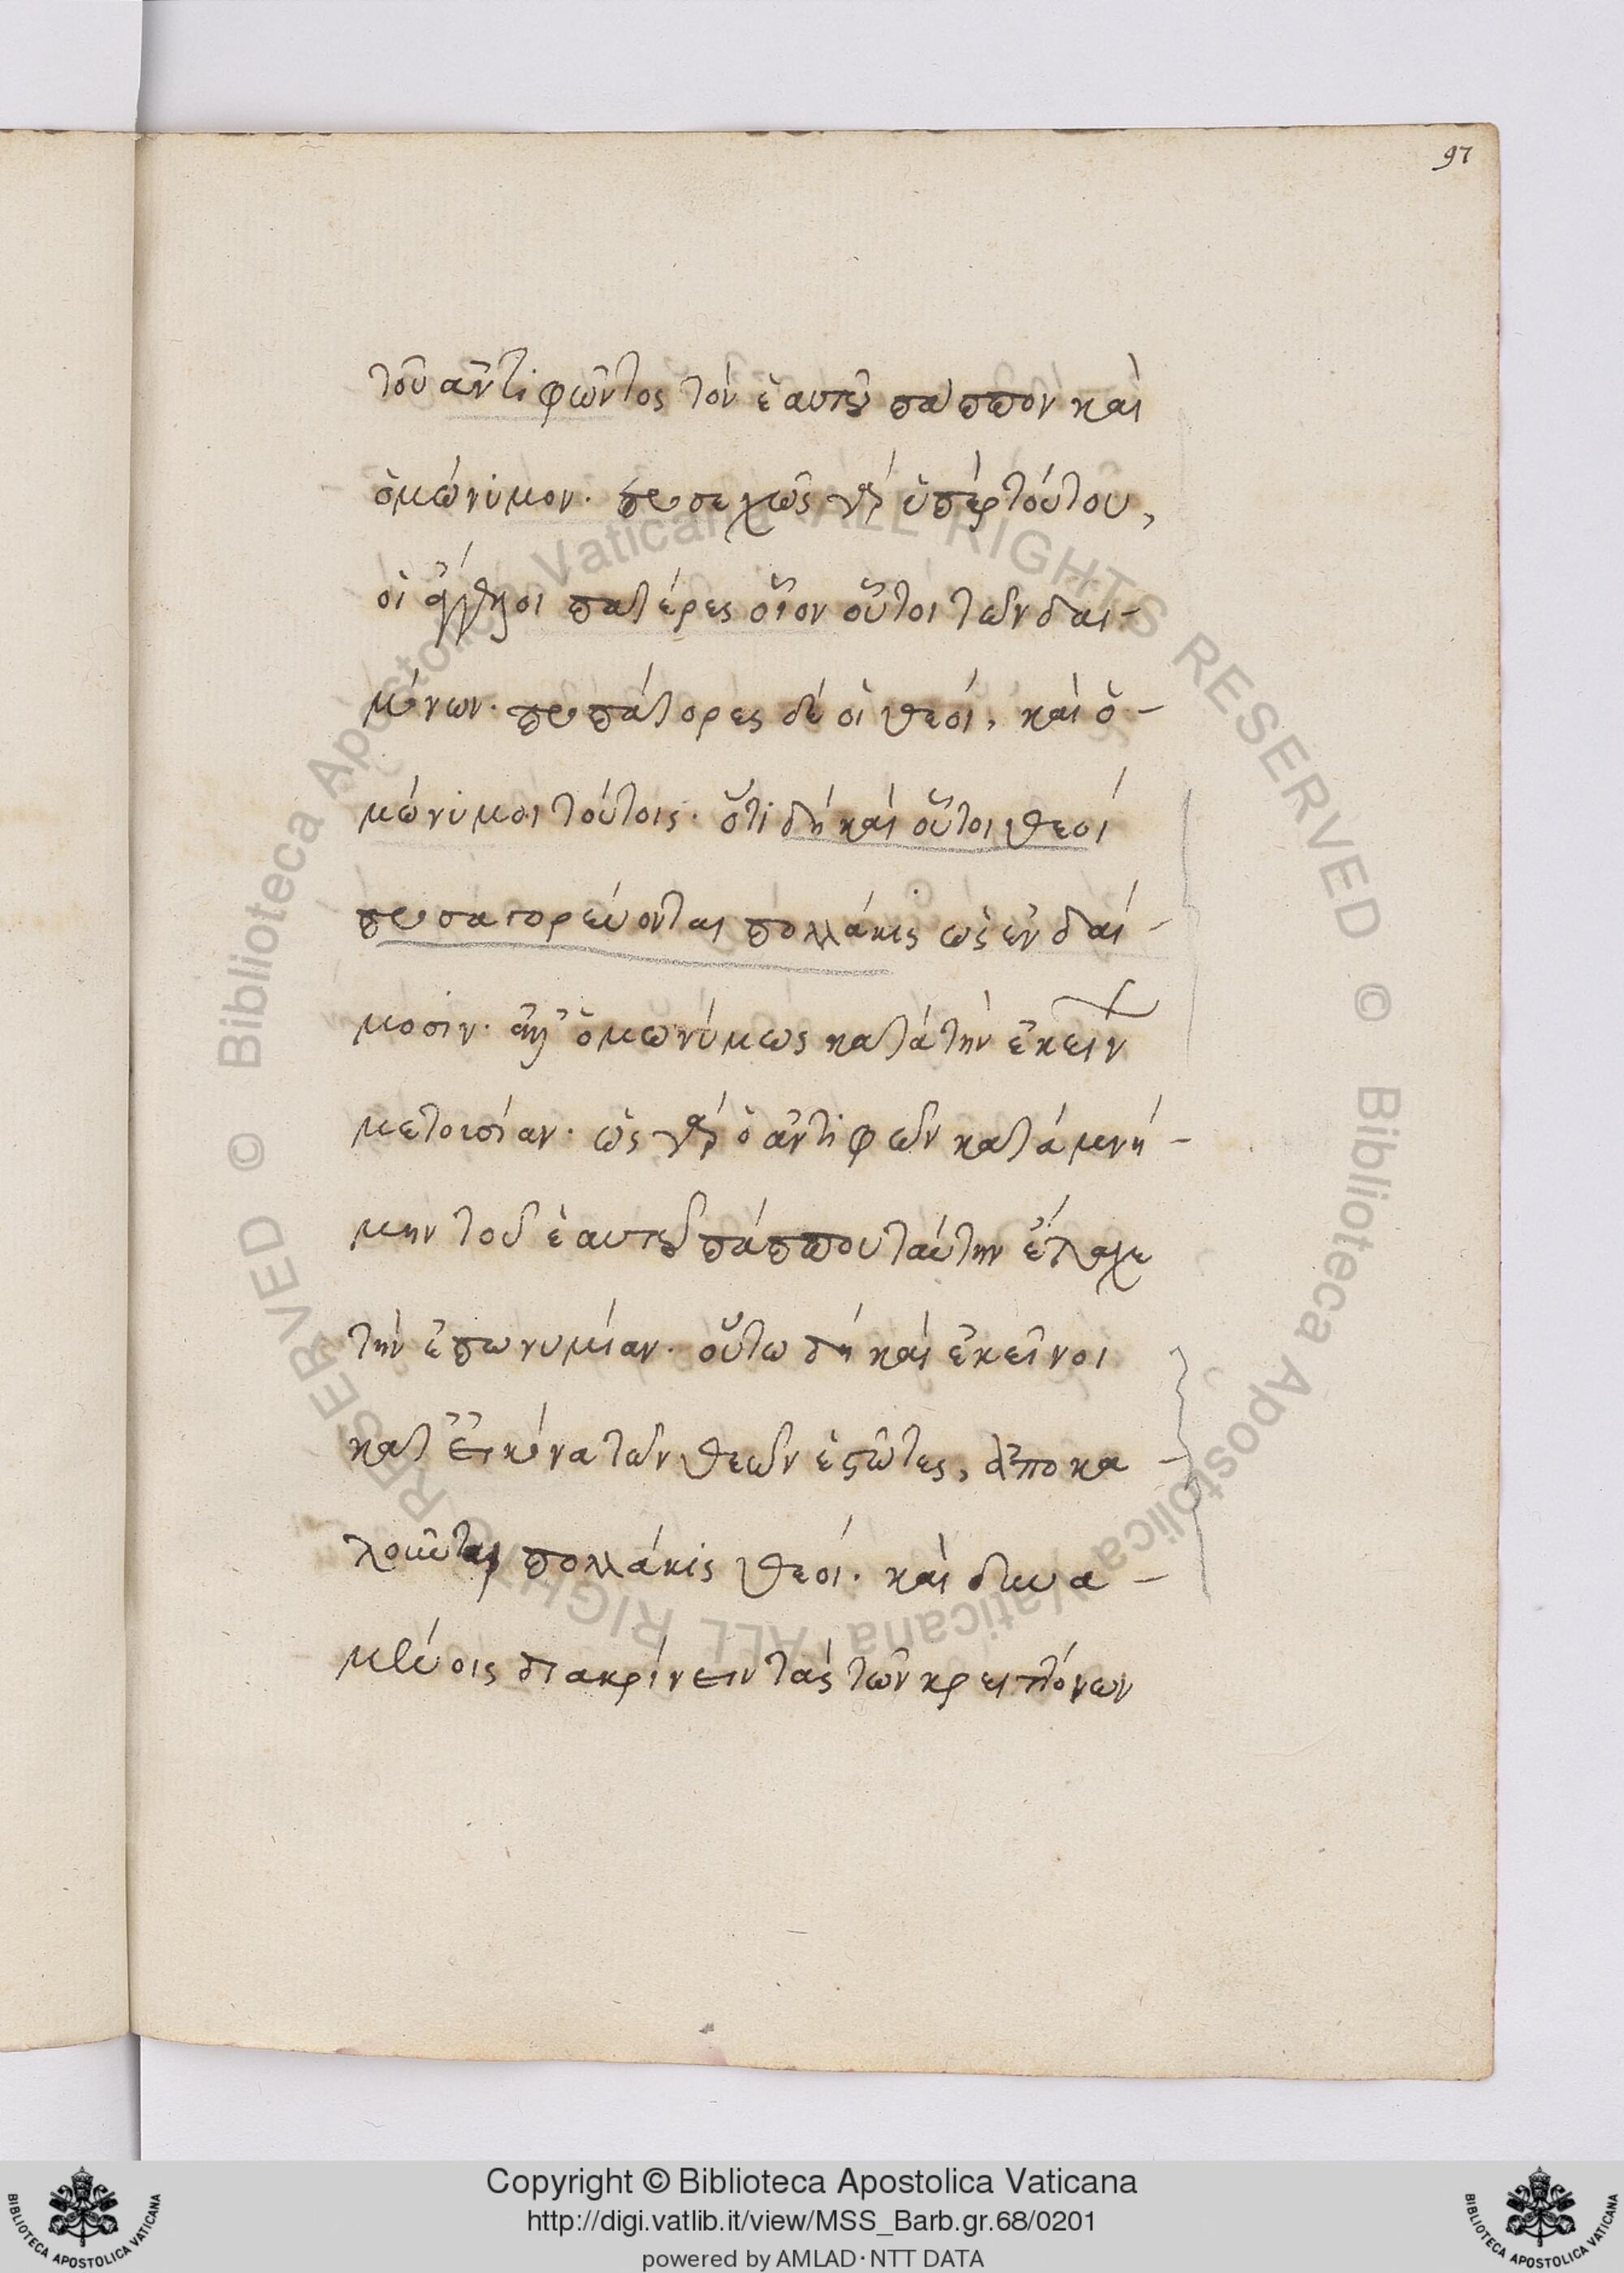 97
τοῦ ἀντιφῶντος τὸν ἑαυτοῦ πάππον καὶ
ὁμώνυμον. προσεχῶς γὰρ ὑπὲρ τούτου,
οἱ ἄγγελοι πατέρες οἷον οὗτοι τῶν δαι-
μόνων. προπάτορες δὲ οἱ θεοί, καὶ ὁ-
μώνυμοι τούτοις. ὅτι δὴ καὶ οὗτοι θεοί
προσαγορεύονται πολλάκις ὡς ἐν δαί-
μοσιν. ἀλλ' ὁμωνύμως κατὰ τὴν ἐκείνων
μετουσίαν. ὡς γὰρ ὁ ἀντιφῶν κατὰ μνή-
μην τοῦ ἑαυτοῦ πάππου ταύτην ἔλαχε
τὴν ἐπωνυμίαν. οὕτω δὴ καὶ ἐκεῖνοι
κατ' εἰκόνα τῶν θεῶν ἑστῶτες, ἀποκα-
λοῦνται πολλάκις θεοί. καὶ δυνα-
μένοις διακρίνειν τὰς τῶν κρειττόνων
© Biblioteca Apostolica Vaticana ALL RIGHTS RESERVED © Biblioteca Apostolica Vaticana ALL RIGHTS RESERVED
Copyright © Biblioteca Apostolica Vaticana
http://digi.vatlib.it/view/MSS_Barb.gr.68/0201
powered by AMLAD·NTT DATA
BIBLIOTECA APOSTOLICA VATICANA
BIBLIOTECA APOSTOLICA VATICANA